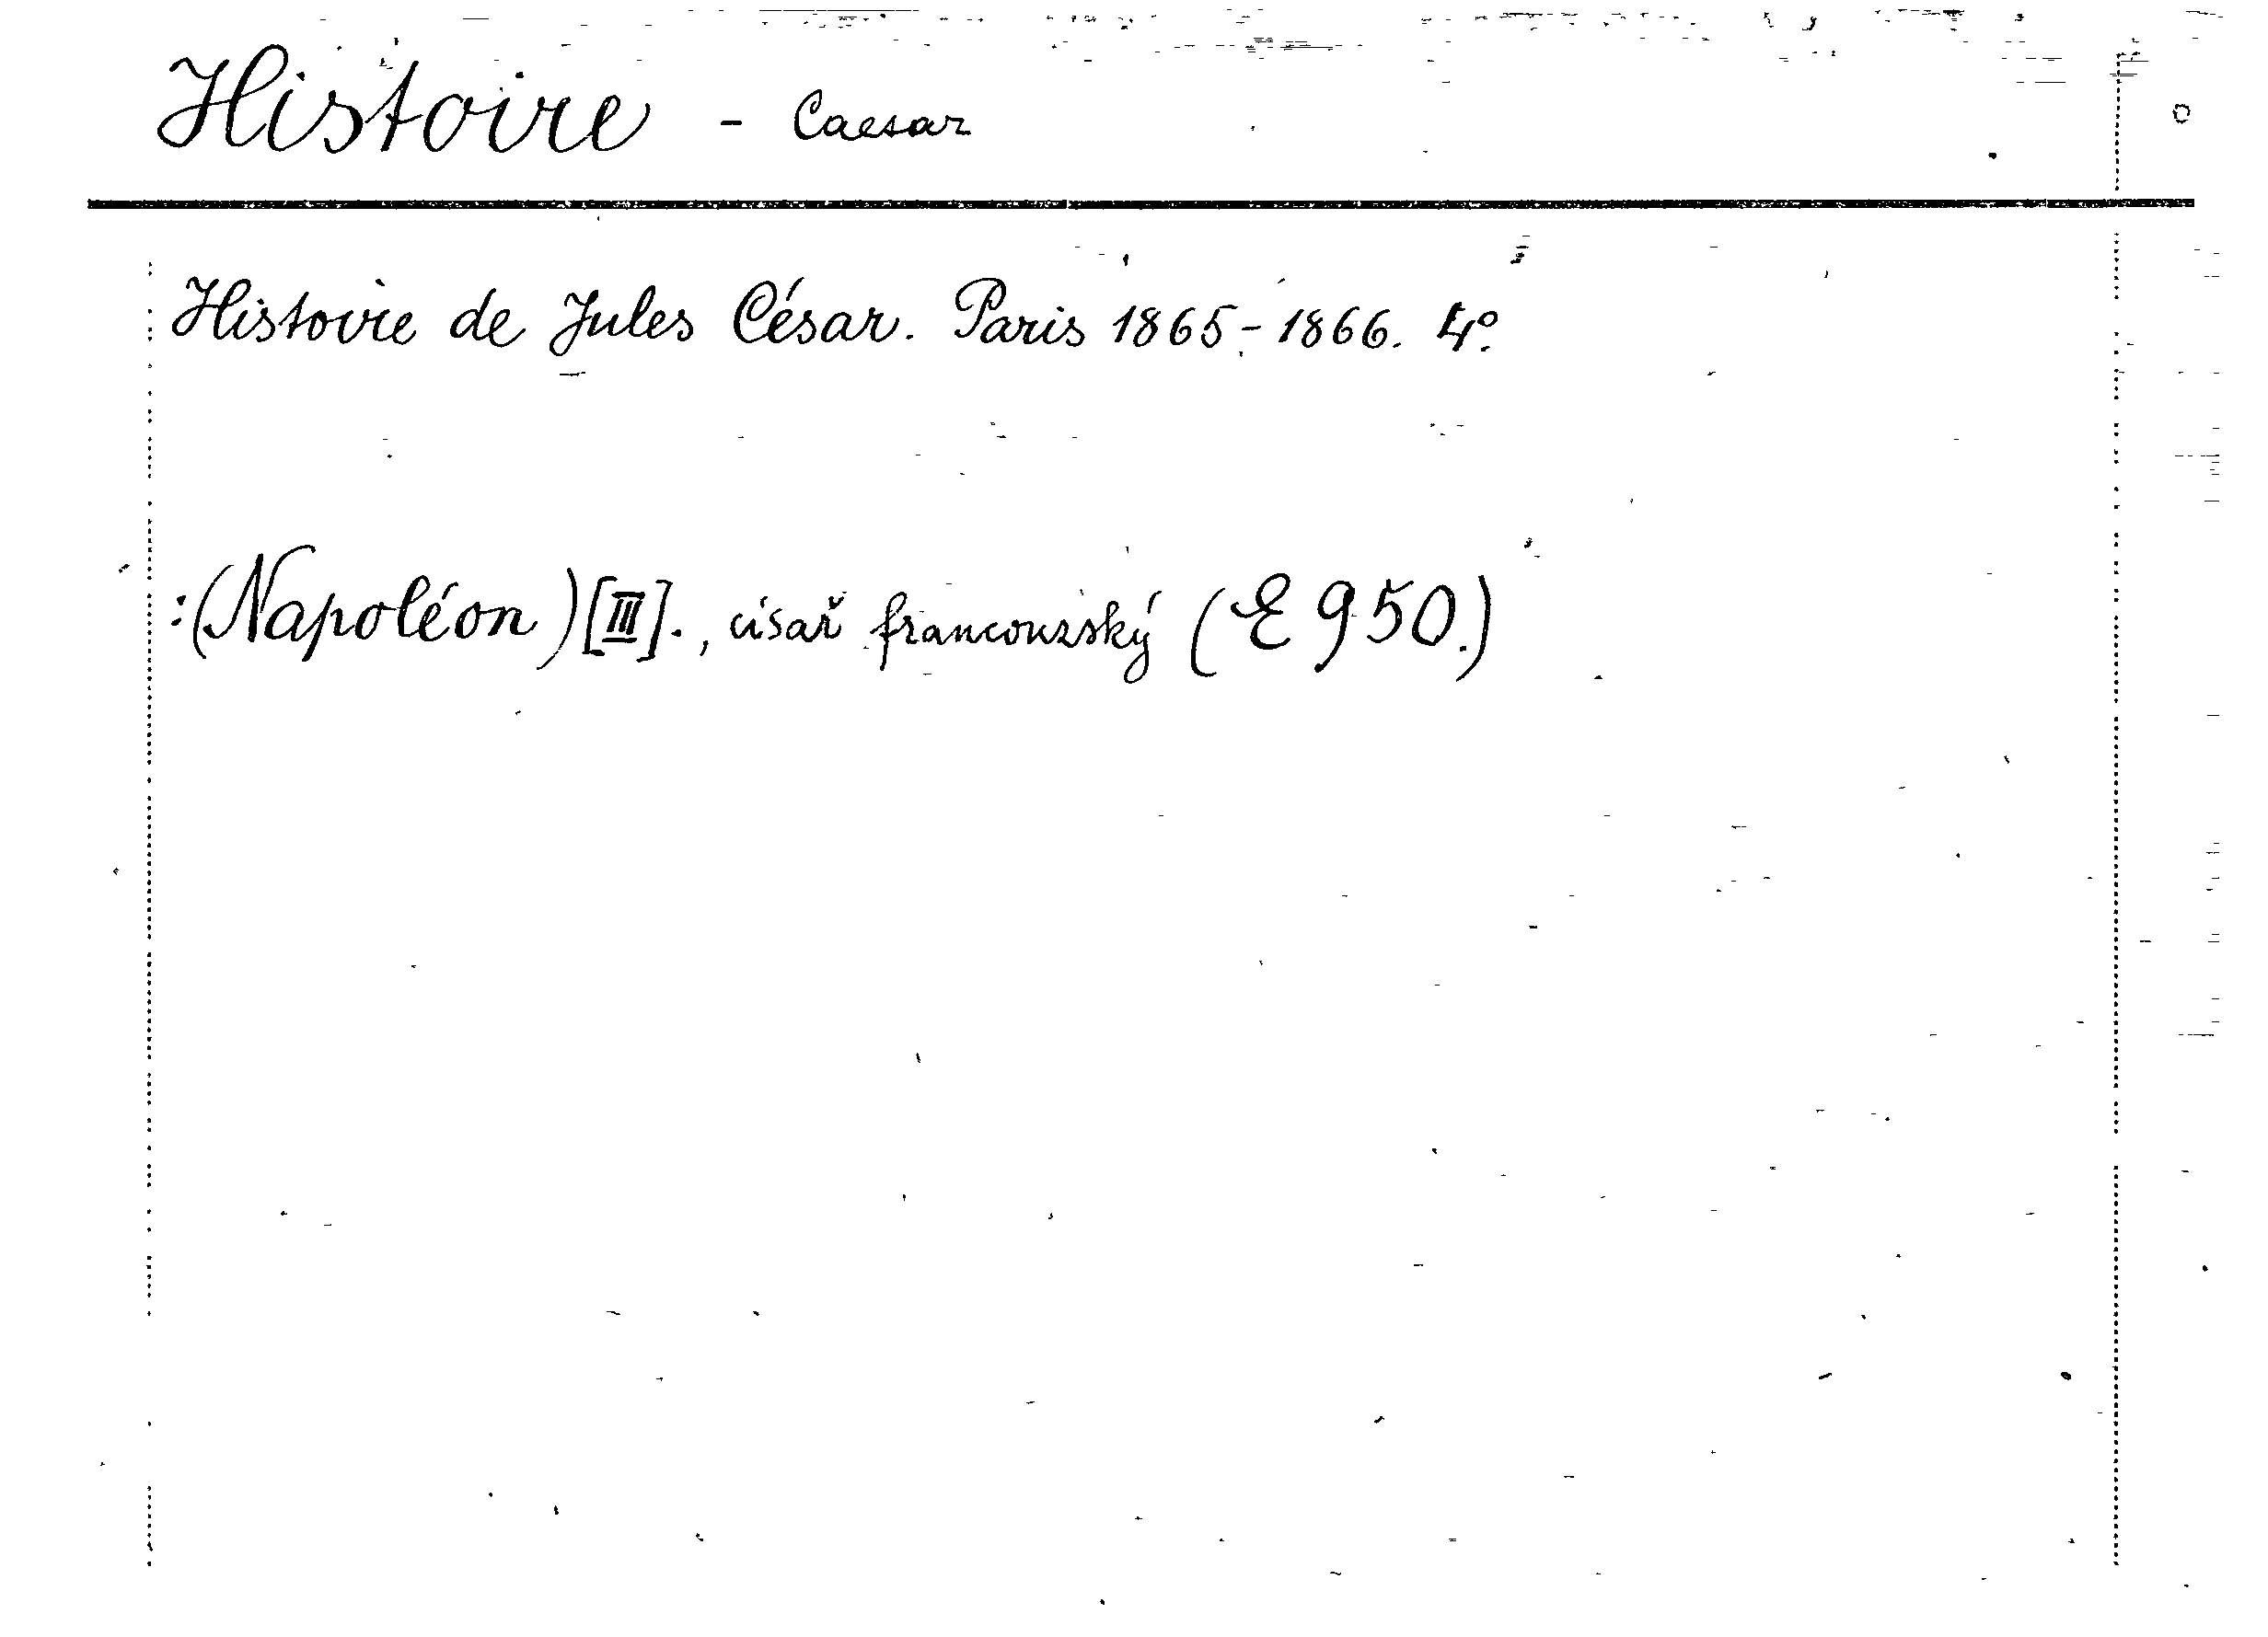 Histoire - Caesar
Histoire de Jules César. Paris 1865-1866. 4°.
:(Napoléon)[III]., císař francouzský (E 950.)